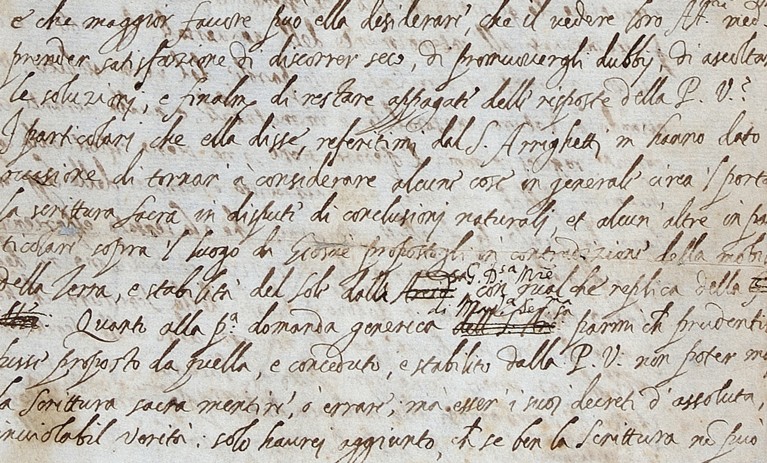 e che maggior favore può ella desiderare, che il veder loro
prender satisfazione di discorrer seco, di promuovergli dubbij, di ascoltar
le soluzioni, e finalm. di restare appagate delle risposte della P. V.?
I particolari che ella disse, referitimi dal S. Arrighetti m hanno dato
occasione di tornar à considerare alcune cose in generale circa 'l porta
la scrittura sacra in dispute di conclusioni naturali, et alcun' altre in pa
ticolare sopra 'l luogo di Giosue propostogli in contradizione della mobil
della Terra, e stabilità del sole dalla con qualche replica della
di
Quanto alla p.ª domanda generica parmi ch prudentis
fusse proposto da quella, e conceduto, e stabilito dalla P. V. non poter ma
la Scrittura sacra mentire, ò errare, ma esser i suoi decreti d'assoluta,
inviolabil verità: solo haurei aggiunto, ch se ben la Scrittura nō può